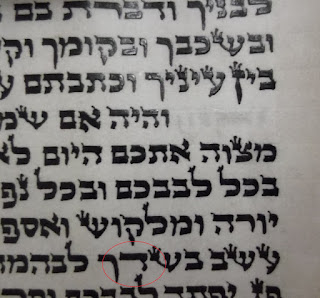 לבניך ודברת בם
ובשכבך ובקומך וק
בין עיניך וכתבתם
והיה אם שמ
מצוה אתכם היום לא
בכל לבבכם ובכל נפ
יורה ומלקוש ואספ
עשב בשדך לבהמ
פן יפתה לבבכם